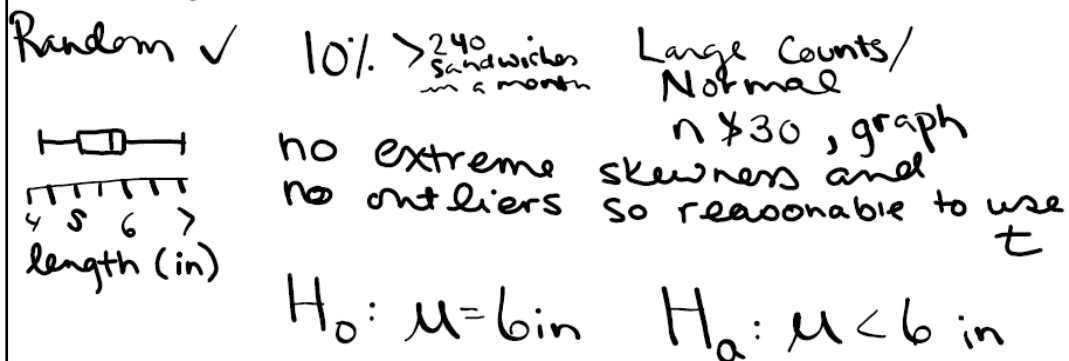 Random ✓ 10% >240 sandwiches in a month Large Counts/
Normal
n ≯ 30, graph
no extreme skewness and
no outliers so reasonable to use
t
4 5 6 7
length (in)
H₀: μ = 6in Hₐ: μ < 6 in